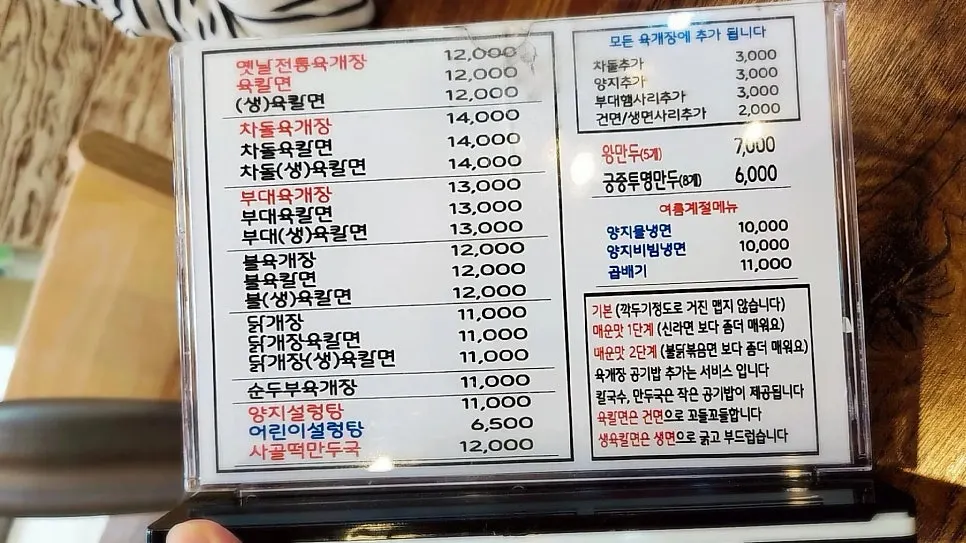 옛날전통육개장 12,000
육칼면 12,000
(생)육칼면 12,000
차돌육개장 14,000
차돌육칼면 14,000
차돌(생)육칼면 14,000
부대육개장 13,000
부대육칼면 13,000
부대(생)육칼면 13,000
불육개장 12,000
불육칼면 12,000
불(생)육칼면 12,000
닭개장 11,000
닭개장육칼면 11,000
닭개장(생)육칼면 11,000
순두부육개장 11,000
양지설렁탕 11,000
어린이설렁탕 6,500
사골떡만두국 12,000
모든 육개장에 추가 됩니다
차돌추가 3,000
양지추가 3,000
부대햄사리추가 3,000
건면/생면사리추가 2,000
왕만두(5개) 7,000
궁중투명만두(8개) 6,000
여름계절메뉴
양지물냉면 10,000
양지비빔냉면 10,000
곱배기 11,000
기본 (깍두기정도로 거진 맵지 않습니다)
매운맛 1단계 (신라면 보다 좀더 매워요)
매운맛 2단계 (불닭볶음면 보다 좀더 매워요)
육개장 공기밥 추가는 서비스 입니다
칼국수, 만두국은 작은 공기밥이 제공됩니다
육칼면은 건면으로 꼬들꼬들합니다
생육칼면은 생면으로 굵고 부드럽습니다